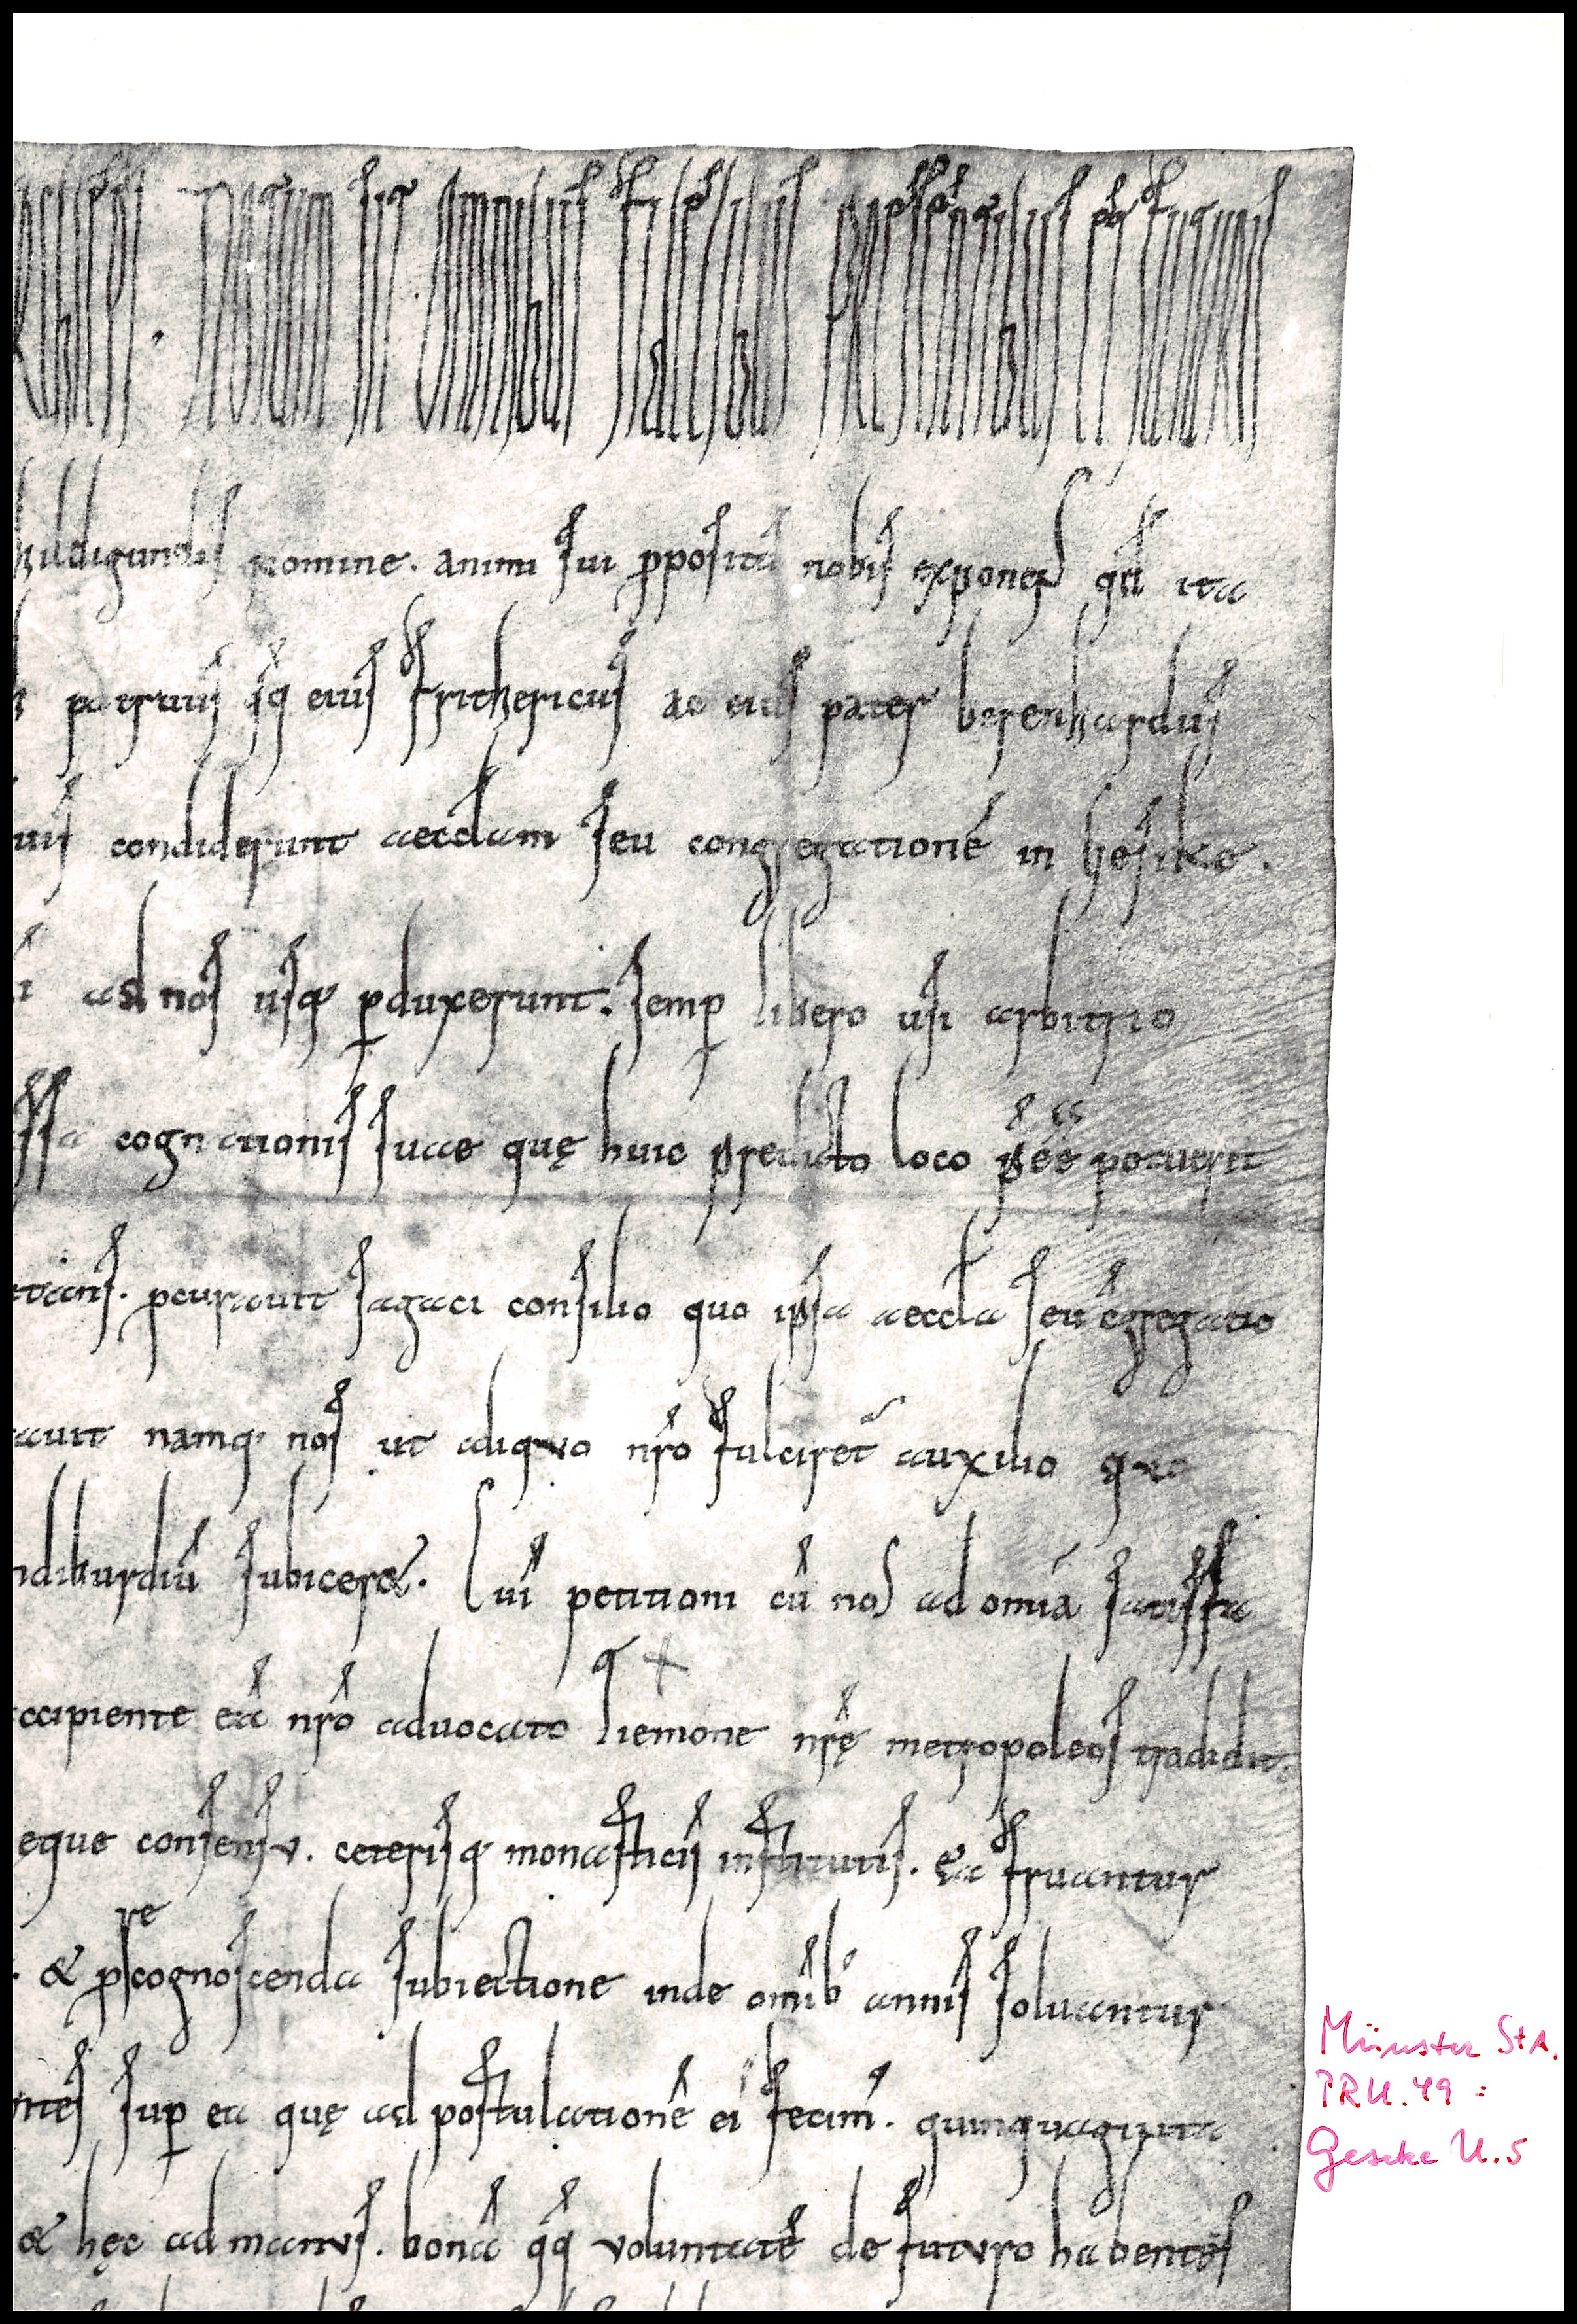 archiep̄s. Notum sit omnibus fidelibus praesentibus et futuris
hildigundis nomine. animi sui p̄positū nobis exponens qđ ita
patruus q̨ eius frithericus ac eius pater berenhardus
uis condiderunt aecclam seu congregationē in gesike.
ad nos usq; ꝑduxerunt. semꝑ libero usi arbitrio
ssa cognationis suae quę huic predicto loco p̄ēē potuerit
etans. ꝑcurauit sagaci consilio quo ipsa aeccla seu c̄gregatio
auit namq; nos ut aliquo nr̄o fulciret̄ auxilio quo
ndiburdiū subicere&. Cui petitioni cū nos ad om̄ia satisfa
ccipiente eā nr̄o aduocato tiemone nr̄ę metropoleos tradidit.
eque consensu. ceterisq; monasticis institutis. ea fruantur
. & ꝑ recognoscenda subiectione inde om̄ib; annis soluantur
ntes suꝑ ea quę ad postulationē ei fecim̄. quinquaginta
& hęc ad manus. bonā q̨q̨ voluntatē de futuro habentes
Münster StA.
PRU. 49 :
Geseke U. 5